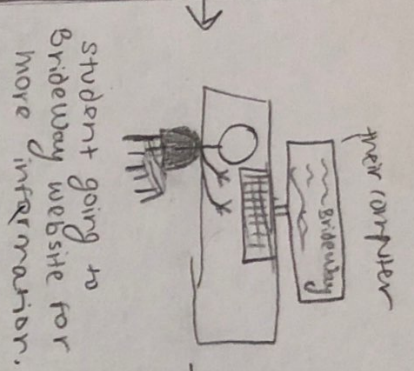 their computer
Brideway
student going to
Brideway website for
more information.